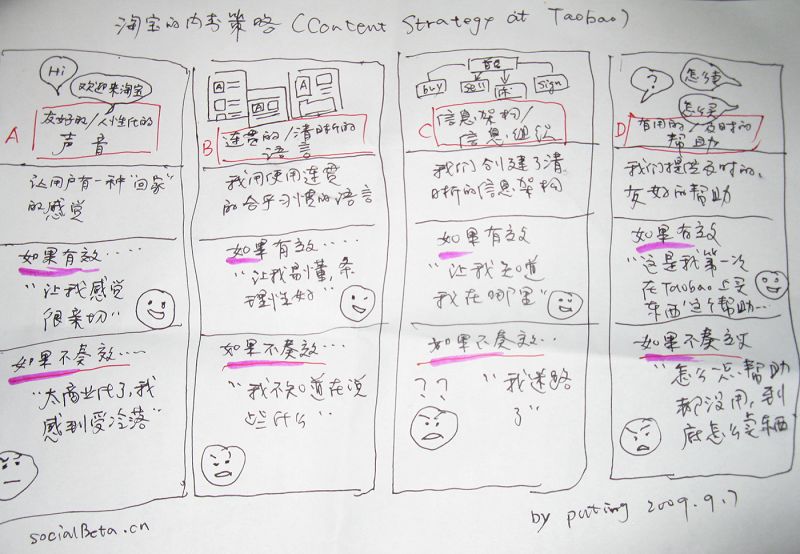 淘宝的内容策略 (Content Strategy at Taobao)
Hi
欢迎来淘宝
A
友好的/人性化的
声音
让用户有一种"回家"
的感觉
如果有效.....
"让我感觉
很亲切"
如果不奏效....
"太商业化了,我
感到受冷落"
A
A
A
B
连贯的/清晰的
语言
我用使用连贯
的合乎习惯的语言
如果有效.....
"让我易懂,条
理性好"
如果不奏效...
"我不知道在说
些什么"
首页
buy
sell
sign
C
信息架构/
信息组织
我们创建了清
晰的信息架构
如果有效
"让我知道
我在哪里"
如果不奏效...
? ? "我迷路
了"
?
怎么卖
怎么买
D
有用的/及时的
帮助
我们提供及时的、
友好的帮助
如果有效
"这是我第一次
在Taobao上买
东西,这个帮助...
如果不奏效
"怎么一点帮助
都没用,到
底怎么卖东西
socialBeta.cn
by puting 2009.9.7